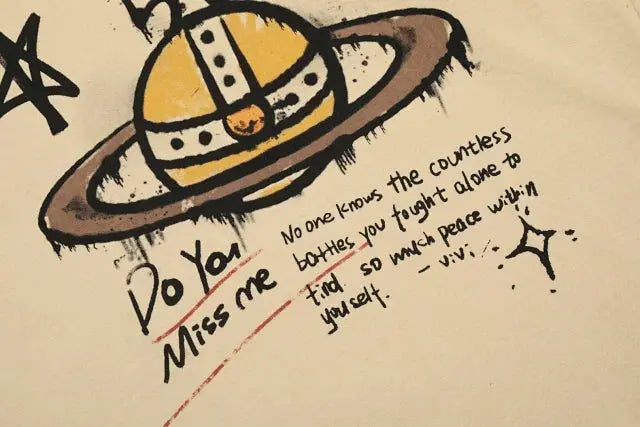 Do You
Miss me
No one knows the countless
battles you fought alone to
find so much peace within
youself.
- vivi